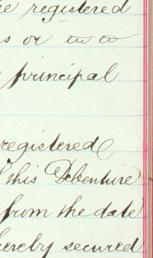 e registered
s or
principal
registered
this Debenture
from the date
hereby secured